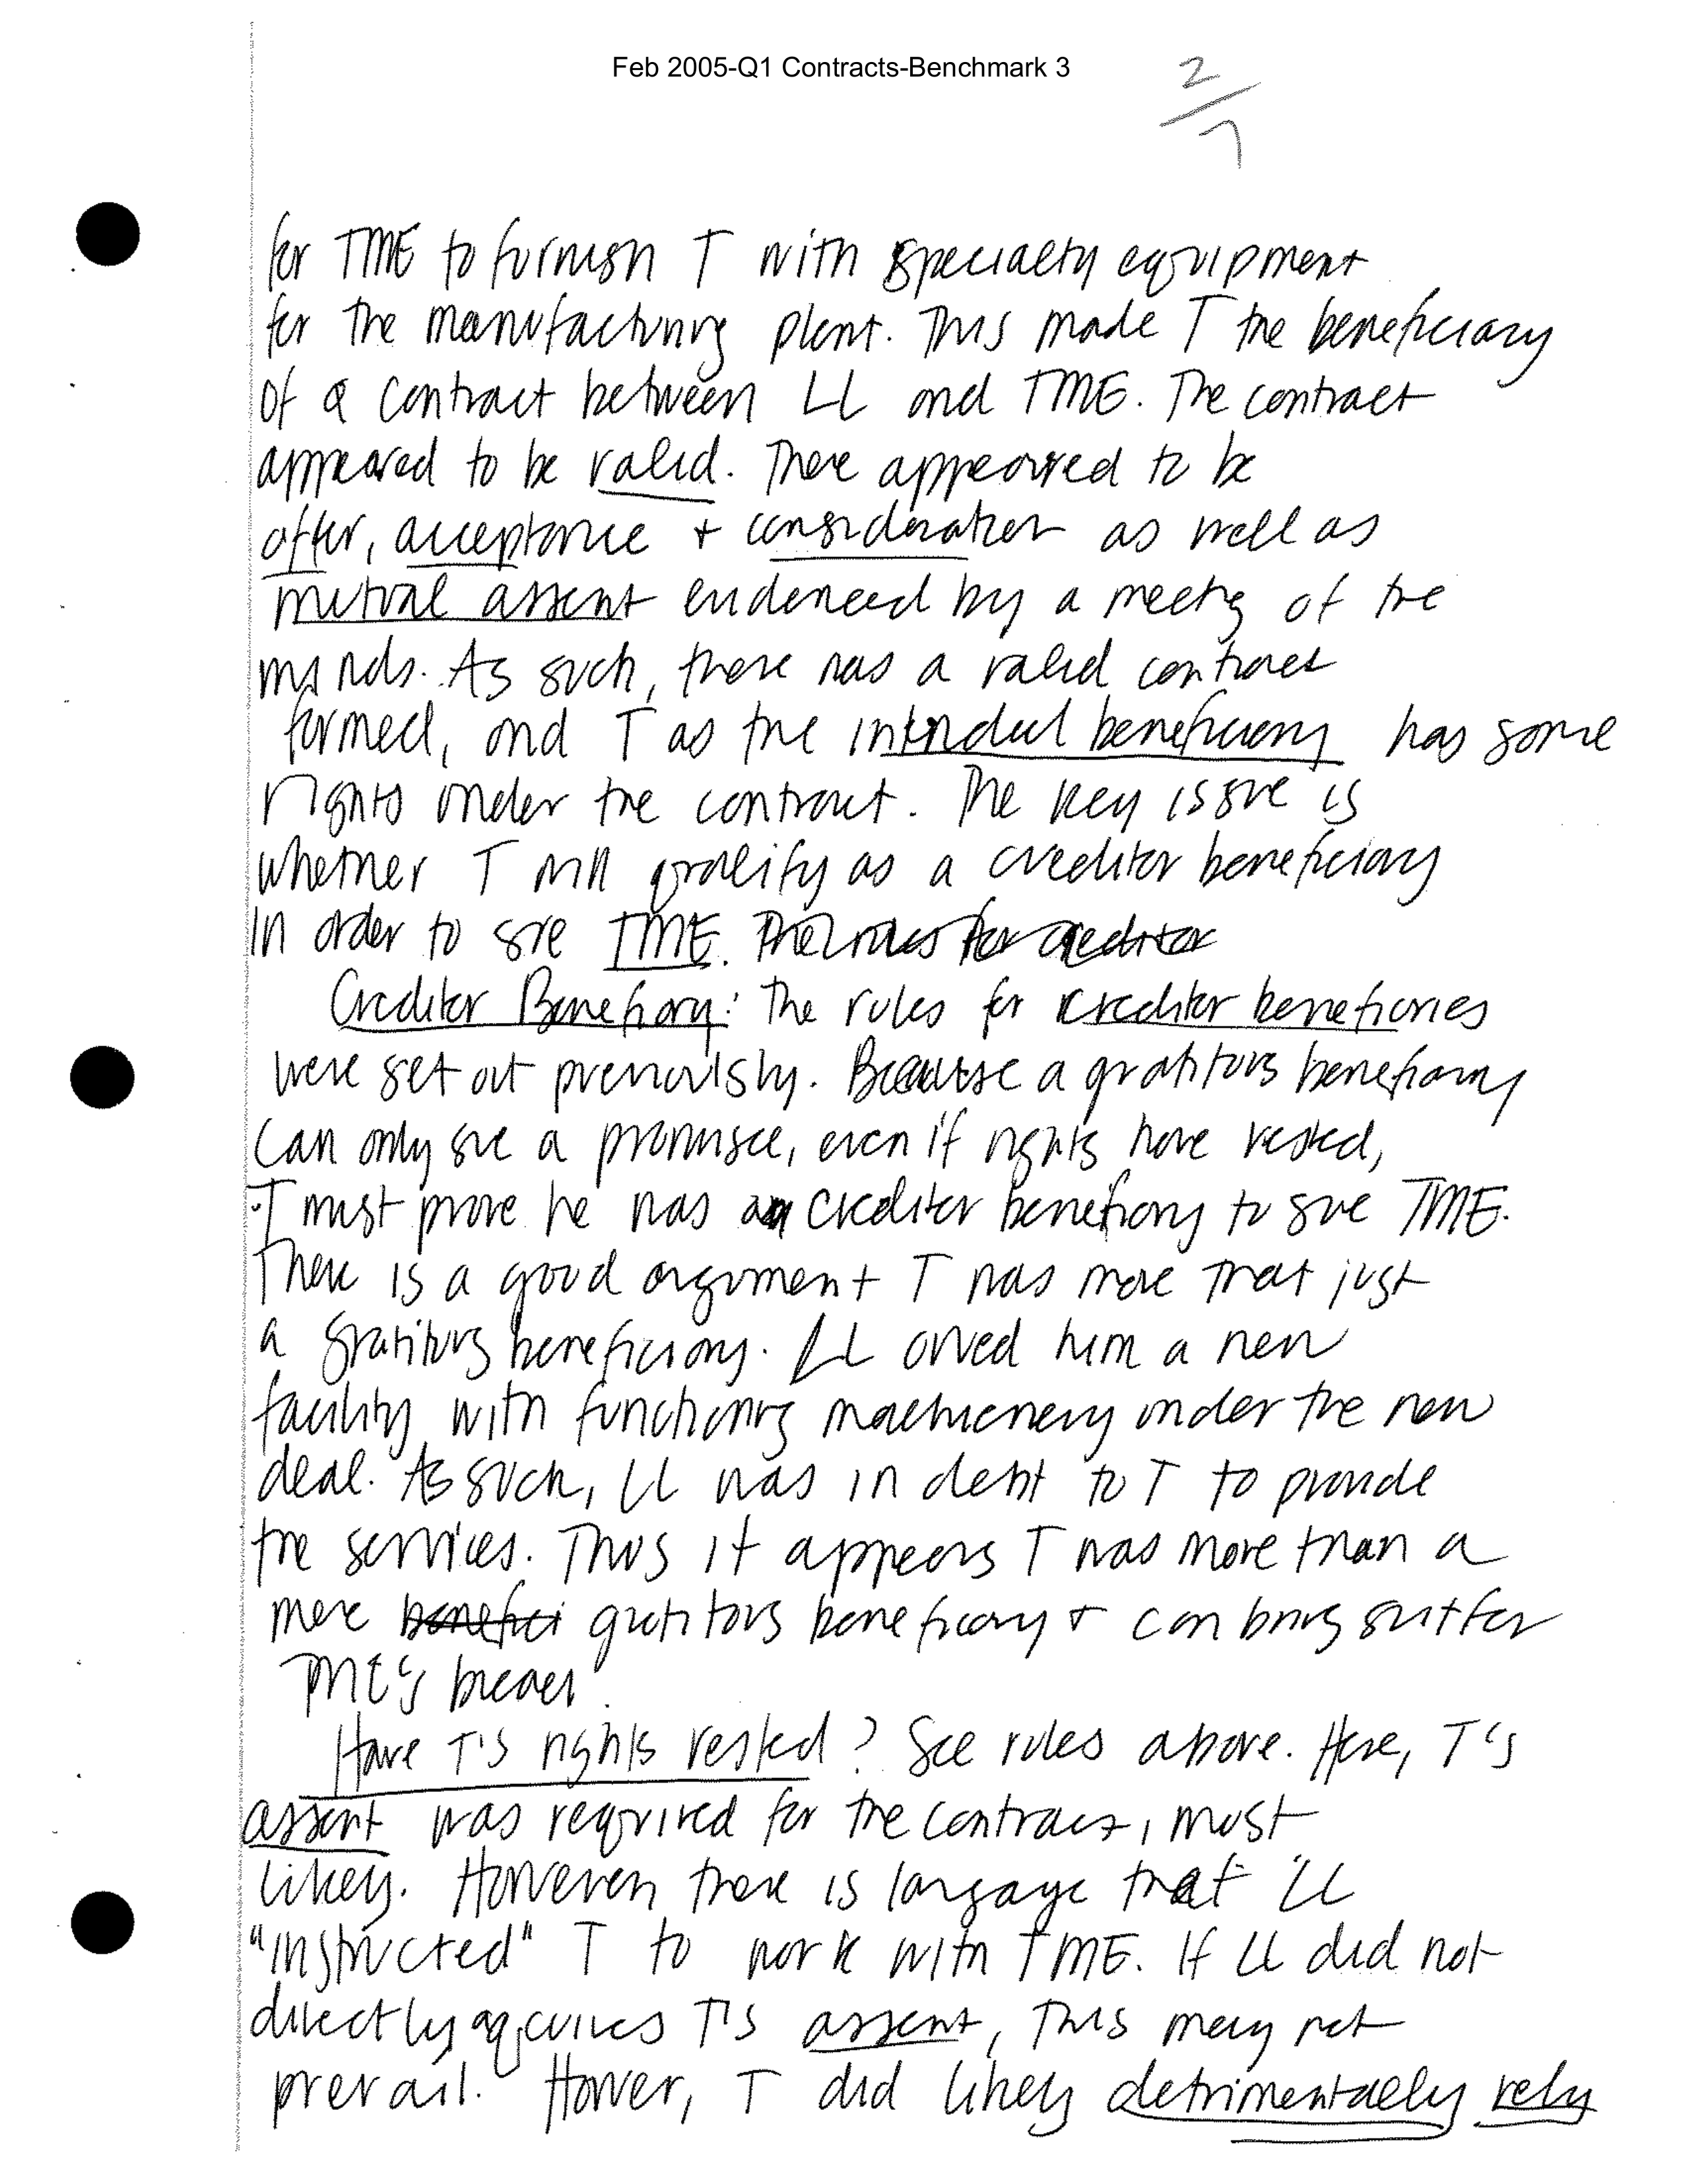 Feb 2005-Q1 Contracts-Benchmark 3
2/7
for TME to furnish T with specialty equipment
for the manufacturing plant. This made T the beneficiary
of a contract between LL and TME. The contract
appeared to be valid. There appeared to be
offer, acceptance + consideration as well as
mutual assent evidenced by a meetng of the
minds. As such, there was a valid contract
formed, and T as the intended beneficiary has some
rights under the contract. The key issue is
whether T will qualify as a creditor beneficiary
in order to sue TME. The rules for creditor
Creditor Beneficiary: The rules for creditor beneficiaries
were set out previously. Because a gratitous beneficiary
can only sue a promisee, even if rights have vested,
T must prove he was a creditor beneficiary to sue TME.
There is a good argument T was more that just
a gratitous beneficiary. LL owed him a new
facility with functioning machienery under the new
deal. As such, LL was in debt to T to provide
the services. Thus it appears T was more than a
mere benefici gratitous beneficiary + can bring suit for
TME's breach.
Have T's rights vested? See rules above. Here, T's
assent was required for the contract, most
likely. However, there is language that LL
"instructed" T to work with TME. If LL did not
directly T's assent, this may not
prevail. However, T did likely detrimentally rely